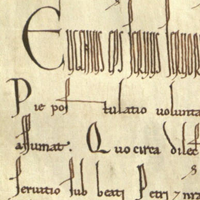 Eugenius eps servus servor
Pie postulatio volunta
assumat. Quocirca dilec
servitio sub beati Petri